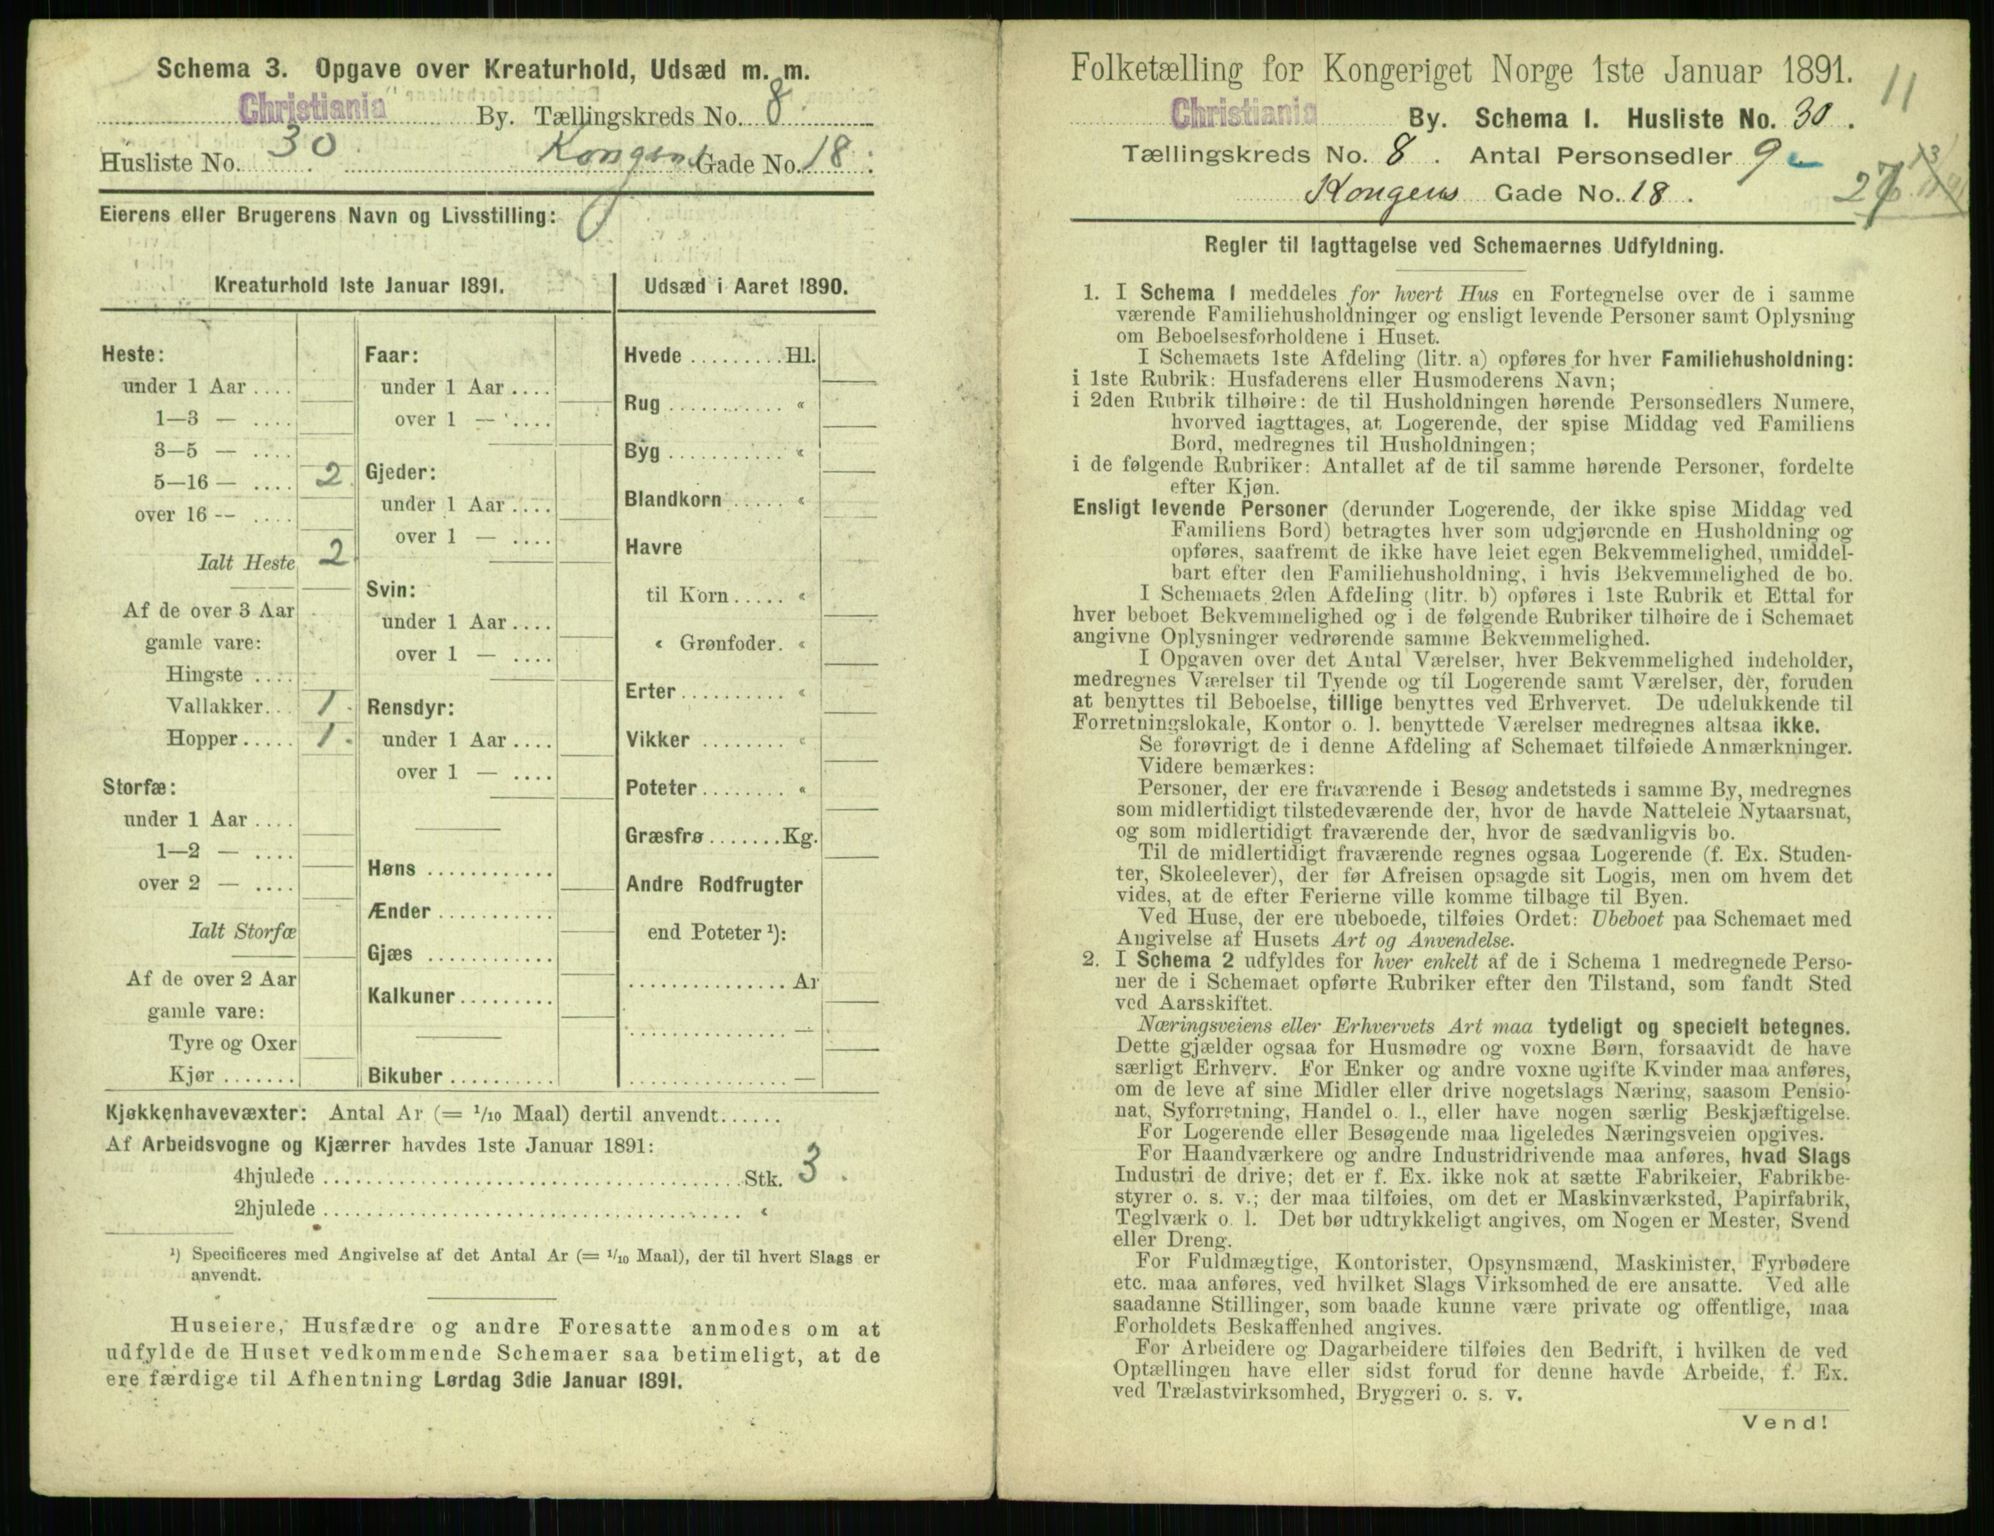 Schema 3. Opgave over Kreaturhold, Udsæd m. m.
Christiania By. Tællingskreds No. 8
Husliste No. 30. Kongens Gade No. 18.
Eierens eller Brugerens Navn og Livsstilling:
Kreaturhold 1ste Januar 1891.
Heste:
under 1 Aar ....
1—3 — ....
3—5 — ....
5—16 — .... 2.
over 16 -- ....
Ialt Heste 2
Af de over 3 Aar
gamle vare:
Hingste ....
Vallakker... 1.
Hopper..... 1.
Storfæ:
under 1 Aar ....
1—2 — ....
over 2 — ....
Ialt Storfæ
Af de over 2 Aar
gamle vare:
Tyre og Oxer
Kjør.......
Faar:
under 1 Aar....
over 1 — ....
Gjeder:
under 1 Aar....
over 1 — ....
Svin:
under 1 Aar....
over 1 — ....
Rensdyr:
under 1 Aar....
over 1 — ....
Høns ............
Ænder...........
Gjæs ............
Kalkuner.........
Bikuber..........
Udsæd i Aaret 1890.
Hvede .........Hl.
Rug ........... «
Byg ........... «
Blandkorn ..... «
Havre
til Korn..... «
« Grønfoder. «
Erter.......... «
Vikker ........ «
Poteter........ «
Græsfrø.......Kg.
Andre Rodfrugter
end Poteter ¹):
...............Ar
...............—
...............—
Kjøkkenhavevæxter: Antal Ar (= 1/10 Maal) dertil anvendt......
Af Arbeidsvogne og Kjærrer havdes 1ste Januar 1891:
4hjulede ........................................Stk. 3.
2hjulede ........................................ «
¹) Specificeres med Angivelse af det Antal Ar (= 1/10 Maal), der til hvert Slags er
anvendt.
Huseiere, Husfædre og andre Foresatte anmodes om at
udfylde de Huset vedkommende Schemaer saa betimeligt, at de
ere færdige til Afhentning Lørdag 3die Januar 1891.
Folketælling for Kongeriget Norge 1ste Januar 1891.
11
Christiania By. Schema I. Husliste No. 30.
Tællingskreds No. 8. Antal Personsedler 9
Kongens Gade No. 18.
Regler til Iagttagelse ved Schemaernes Udfyldning.
1. I Schema 1 meddeles for hvert Hus en Fortegnelse over de i samme
værende Familiehusholdninger og ensligt levende Personer samt Oplysning
om Beboelsesforholdene i Huset.
I Schemaets 1ste Afdeling (litr. a) opføres for hver Familiehusholdning:
i 1ste Rubrik: Husfaderens eller Husmoderens Navn;
i 2den Rubrik tilhøire: de til Husholdningen hørende Personsedlers Numere,
hvorved iagttages, at Logerende, der spise Middag ved Familiens
Bord, medregnes til Husholdningen;
i de følgende Rubriker: Antallet af de til samme hørende Personer, fordelte
efter Kjøn.
Ensligt levende Personer (derunder Logerende, der ikke spise Middag ved
Familiens Bord) betragtes hver som udgjørende en Husholdning og
opføres, saafremt de ikke have leiet egen Bekvemmelighed, umiddel-
bart efter den Familiehusholdning, i hvis Bekvemmelighed de bo.
I Schemaets 2den Afdeling (litr. b) opføres i 1ste Rubrik et Ettal for
hver beboet Bekvemmelighed og i de følgende Rubriker tilhøire de i Schemaet
angivne Oplysninger vedrørende samme Bekvemmelighed.
I Opgaven over det Antal Værelser, hver Bekvemmelighed indeholder,
medregnes Værelser til Tyende og til Logerende samt Værelser, der, foruden
at benyttes til Beboelse, tillige benyttes ved Erhvervet. De udelukkende til
Forretningslokale, Kontor o. l. benyttede Værelser medregnes altsaa ikke.
Se forøvrigt de i denne Afdeling af Schemaet tilføiede Anmærkninger.
Videre bemærkes:
Personer, der ere fraværende i Besøg andetsteds i samme By, medregnes
som midlertidigt tilstedeværende der, hvor de havde Natteleie Nytaarsnat,
og som midlertidigt fraværende der, hvor de sædvanligvis bo.
Til de midlertidigt fraværende regnes ogsaa Logerende (f. Ex. Studen-
ter, Skoleelever), der før Afreisen opsagde sit Logis, men om hvem det
vides, at de efter Ferierne ville komme tilbage til Byen.
Ved Huse, der ere ubeboede, tilføies Ordet: Ubeboet paa Schemaet med
Angivelse af Husets Art og Anvendelse.
2. I Schema 2 udfyldes for hver enkelt af de i Schema 1 medregnede Perso-
ner de i Schemaet opførte Rubriker efter den Tilstand, som fandt Sted
ved Aarsskiftet.
Næringsveiens eller Erhvervets Art maa tydeligt og specielt betegnes.
Dette gjælder ogsaa for Husmødre og voxne Børn, forsaavidt de have
særligt Erhverv. For Enker og andre voxne ugifte Kvinder maa anføres,
om de leve af sine Midler eller drive nogetslags Næring, saasom Pensio-
nat, Syforretning, Handel o. l., eller have nogen særlig Beskjæftigelse.
For Logerende eller Besøgende maa ligeledes Næringsveien opgives.
For Haandværkere og andre Industridrivende maa anføres, hvad Slags
Industri de drive; det er f. Ex. ikke nok at sætte Fabrikeier, Fabrikbe-
styrer o. s. v.; der maa tilføies, om det er Maskinværksted, Papirfabrik,
Teglværk o. l. Det bør udtrykkeligt angives, om Nogen er Mester, Svend
eller Dreng.
For Fuldmægtige, Kontorister, Opsynsmænd, Maskinister, Fyrbødere
etc. maa anføres, ved hvilket Slags Virksomhed de ere ansatte. Ved alle
saadanne Stillinger, som baade kunne være private og offentlige, maa
Forholdets Beskaffenhed angives.
For Arbeidere og Dagarbeidere tilføies den Bedrift, i hvilken de ved
Optællingen have eller sidst forud for denne havde Arbeide, f. Ex.
ved Trælastvirksomhed, Bryggeri o. s. v.
Vend!